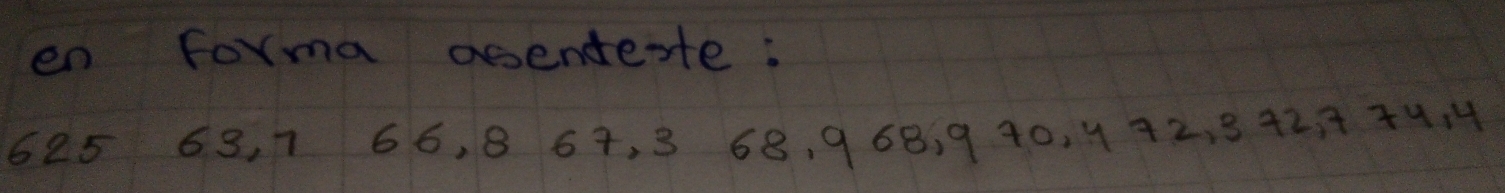 en forma asendente:
625 63,1 66,8 67,3 68,9 68,9 70,4 72,3 72,7 74,4